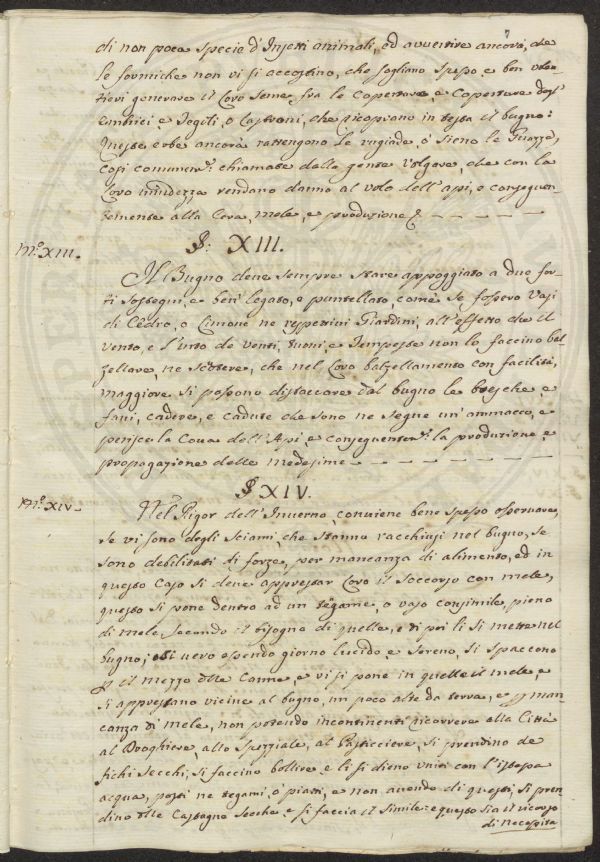 di non poca specie d'Insetti animali, ed avvertire ancora, che
le formiche non vi si accostino, che sogliano spesso, e ben volen-
tieri generare il loro seme, fra le copertore, e coperture degl'
Embrici, e Tegoli, o lastroni, che ricoprano in testa il bugno:
Queste erbe ancora rattengono le rugiade, ò sieno le Guazze,
così comunem.te chiamate dalla gente Volgare, che con la
loro umidezza rendano danno al volo dell'api, e conseguen-
temente alla Cera, mele, e produzione
M.o XIII.
§: XIII.
Il Bugno deve sempre stare appoggiato a due for-
ti sostegni, e ben legato, e puntellato, come se fossero Vasi
di Cedro, o Limone ne rispettivi Giardini, all'effetto che il
vento, e l'urto de venti, tuoni, e tempeste non lo faccino bal-
zellare, ne scotere, che nel loro balzellamento con facilità,
maggiore si possono distaccare dal bugno le bresche, e
fiani, cadere, e cadute che sono ne segue un'ammacco, e
perisce la Cova dell'Api, e conseguentem.te la produzione, e
propagazione delle medesime
M.o XIV.
§ XIV.
Nel Rigor dell'Inverno, conviene bene spesso osservare,
se vi sono degli Sciami, che stanno racchiusi nel bugno, se
sono debilitati di forze, per mancanza di alimento, ed in
questo caso si deve appressar loro il soccorso con mele,
questo si pone dentro ad un tegame, o vaso consimile, pieno
di mele, secondo il bisogno di quelle, e di poi li si mette nel
bugno; ò di vero essendo giorno lucido, e sereno, si spaccono
p il mezzo delle Canne, e vi si pone in quelle il mele, e
si appressano vicine al bugno, un poco alte da terra, e p man-
canza di mele, non potendo incontinenti ricorrere alla Città
al Droghiere, allo Speziale, al Pasticciere, si prendino de
fichi secchi, si faccino bollire, e li si dieno uniti con l'istessa
acqua, posti ne tegami, ò piatti, e non avendo di questi, si pren-
dino delle Castagne secche, e si faccia il simile: e questo sia il ricorso
di necessità